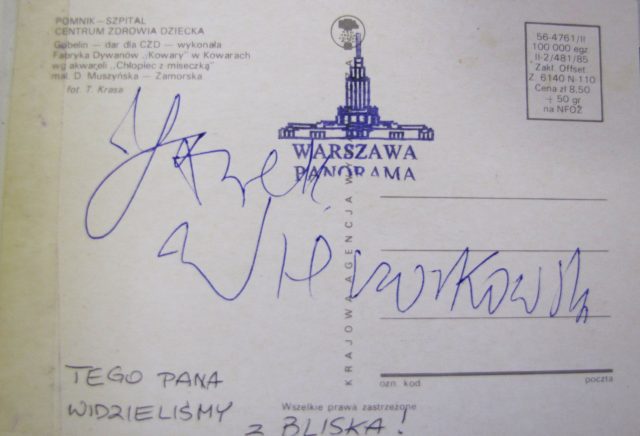 POMNIK — SZPITAL
CENTRUM ZDROWIA DZIECKA
Gobelin — dar dla CZD — wykonała
Fabryka Dywanów „Kowary" w Kowarach
wg akwareli „Chłopiec z miseczką"
mal. D. Muszyńska — Zamorska
fot. T. Krasa
56-4761/II
100 000 egz
II-2/481/85
Zakł. Offset
Z. 6140 N-110
Cena zł 8,50
+ 50 gr
na NFOZ
WARSZAWA
PANORAMA
KRAJOWA AGENCJA
Jarek
ozn. kod poczta
Wszelkie prawa zastrzeżone
TEGO PANA
WIDZIELIŚMY
Z BLISKA!